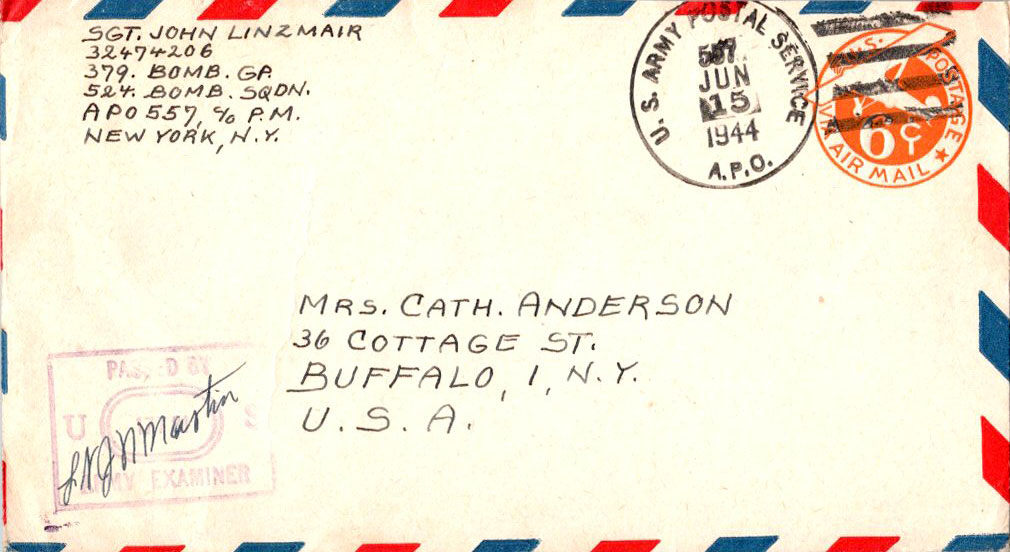 SGT. JOHN LINZMAIR
32474206
379. BOMB. GP.
524. BOMB. SQDN.
APO 557, c/o P.M.
NEW YORK, N.Y.
U. S. ARMY POSTAL SERVICE
557
JUN
15
1944
A.P.O.
U.S. POSTAGE
6¢
VIA AIR MAIL ★
MRS. CATH. ANDERSON
36 COTTAGE ST.
BUFFALO, 1, N.Y.
U. S. A.
PASSED BY
U S
ARMY EXAMINER
Martin